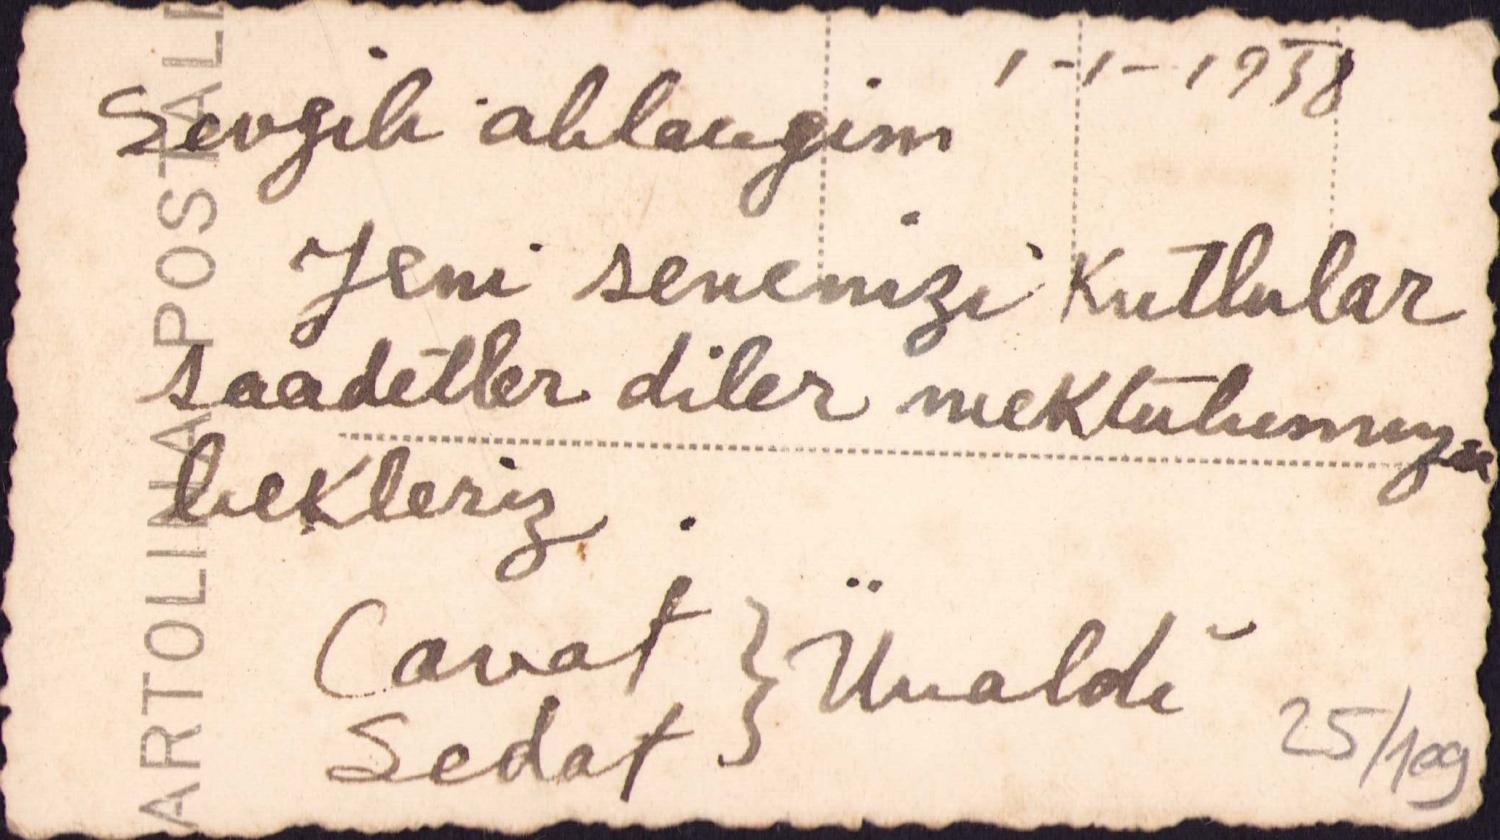 1-1-1938
Sevgili ablacığım
Yeni senenizi Kutlular
saadetler diler meKtubumuzu
beKleriz.
Cavat } Ünaldı
Sedat
25/109
CARTOLINA POSTALE